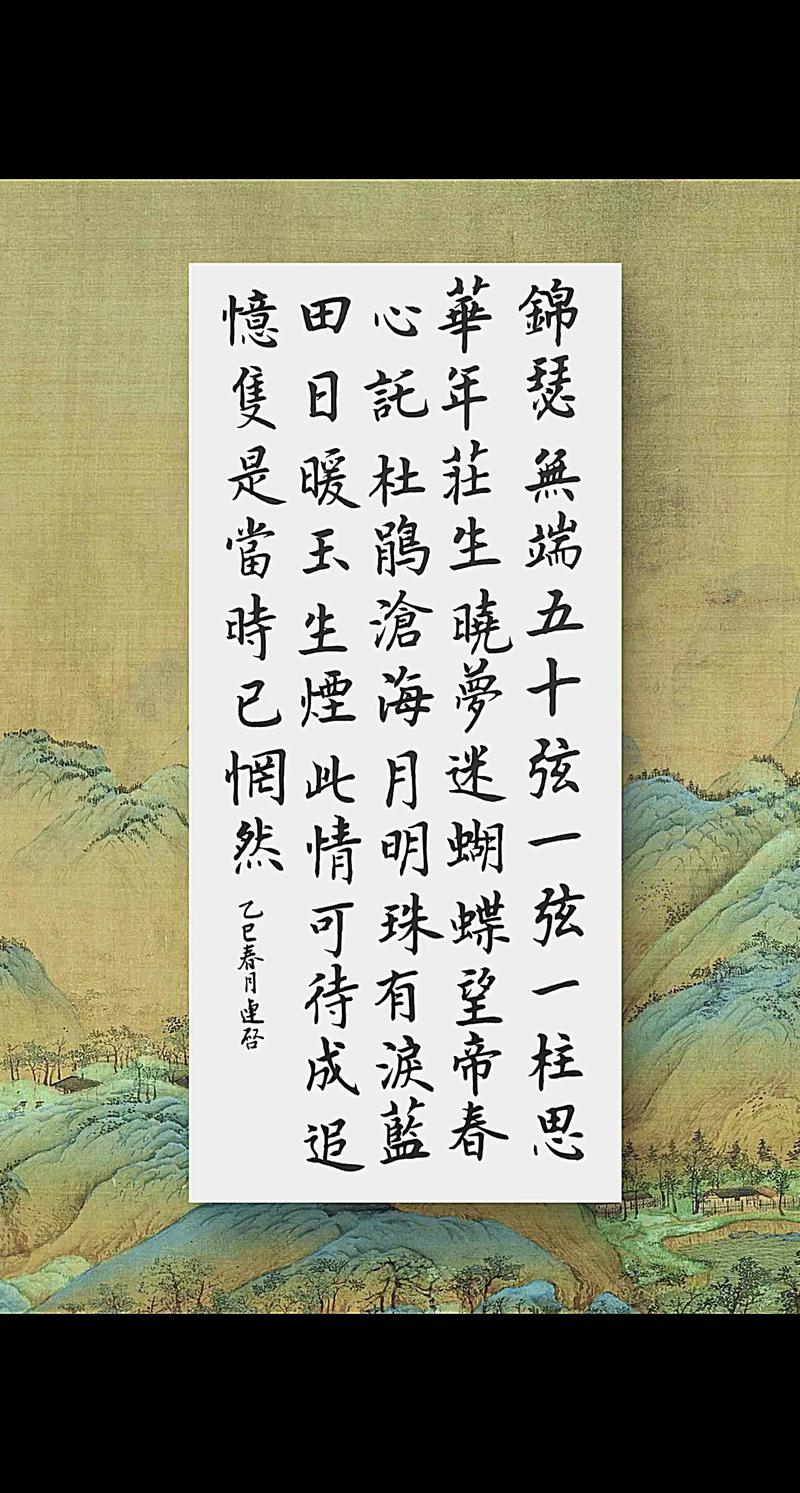 錦瑟無端五十弦一弦一柱思
華年莊生曉夢迷蝴蝶望帝春
心託杜鵑滄海月明珠有淚藍
田日暖玉生煙此情可待成追
憶隻是當時已惘然
乙巳春月連啓